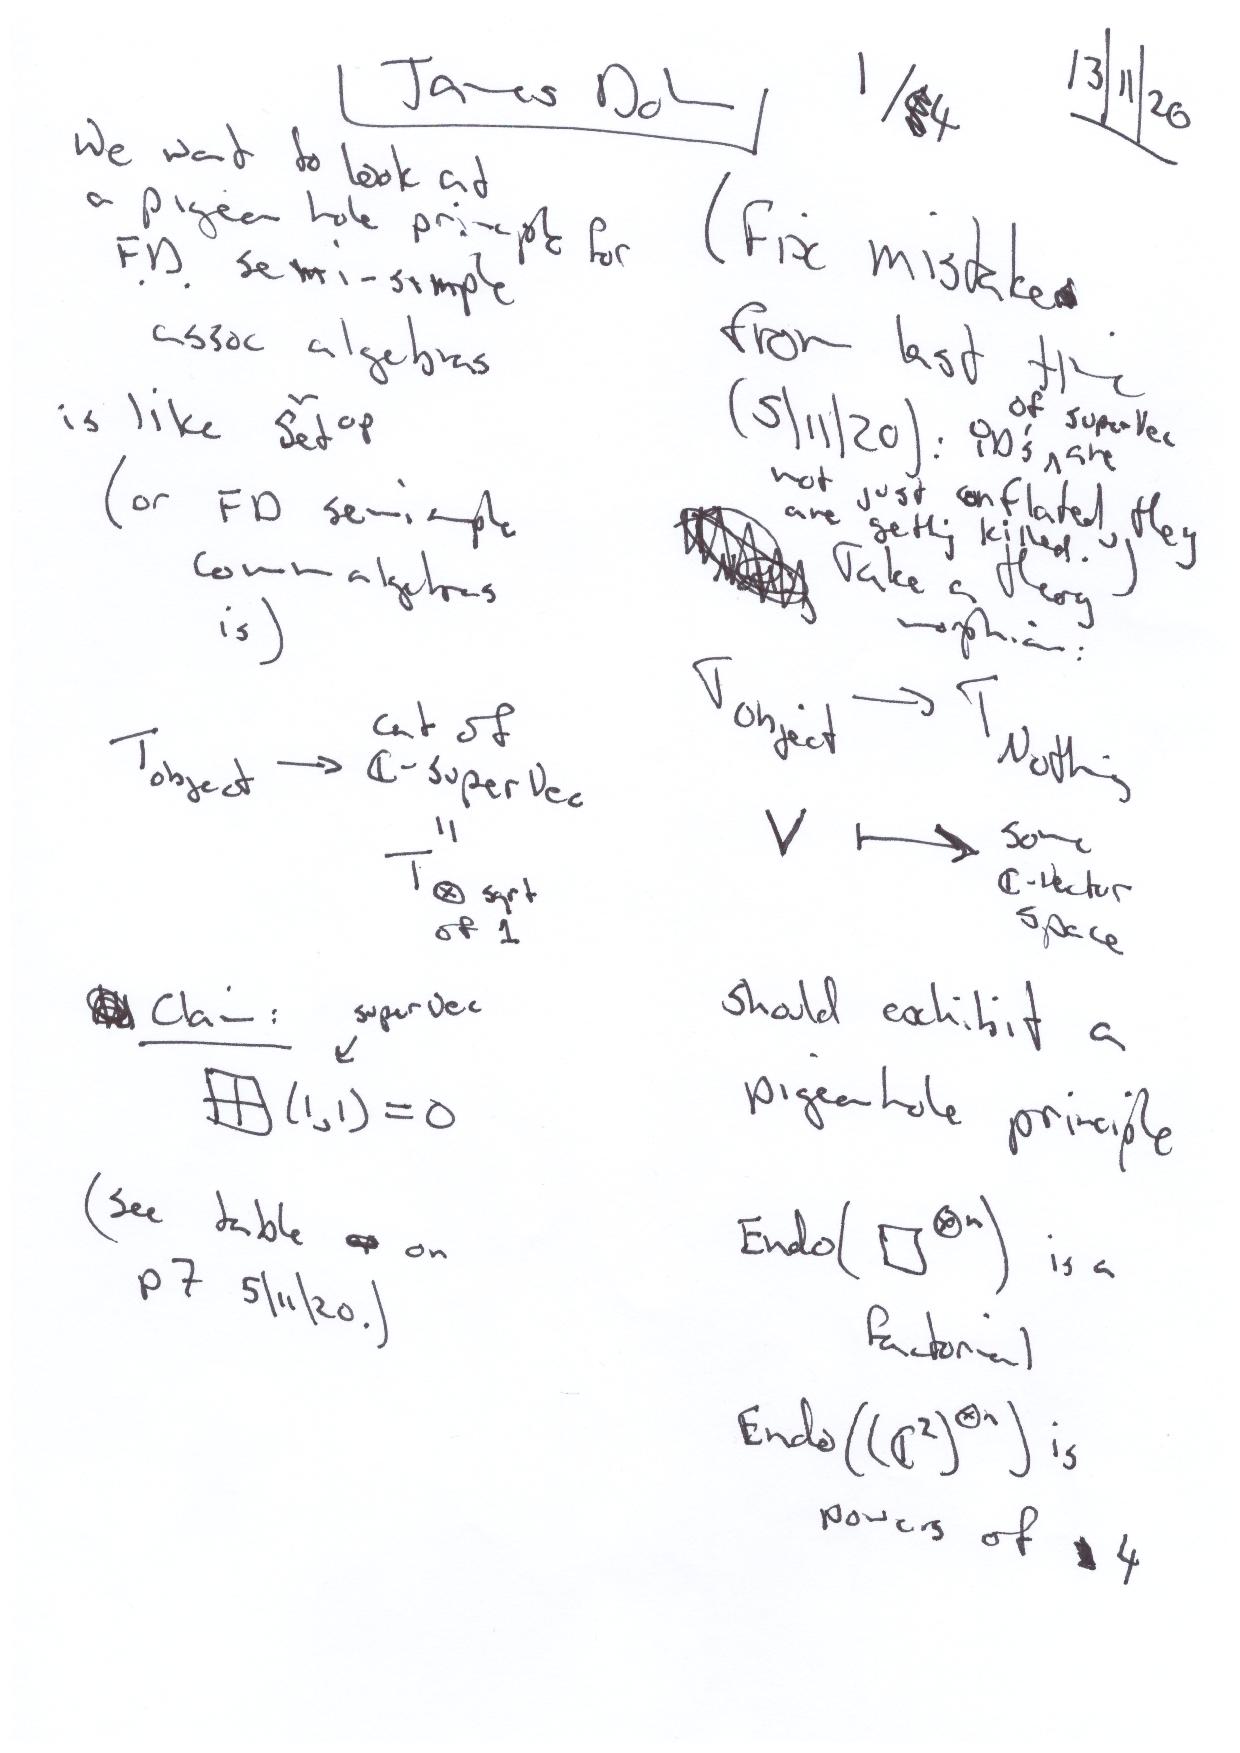 James Dol
1/4
13/11/20
We want to look at
a pigeon hole principle for
F.D. semi-simple
assoc algebras
is like Set^op
(or FD semisimple
comm algebras
is)
T_object → cat of
ℂ-superVec
=
T_⊗ sqrt
of 1
Claim:
superVec
↙
⊞ (1,1) = 0
(see table on
p7 5/11/20.)
(Fix mistake
from last time
(5/11/20): iD's ^ are
of superVec
not just conflated, they
are getting killed.)
Take a theory
morphism:
T_object → T_Nothing
V ↦ some
ℂ-vector
space
should exhibit a
pigeonhole principle
Endo(□^⊗n) is a
factorial
Endo((ℂ²)^⊗n) is
powers of 4